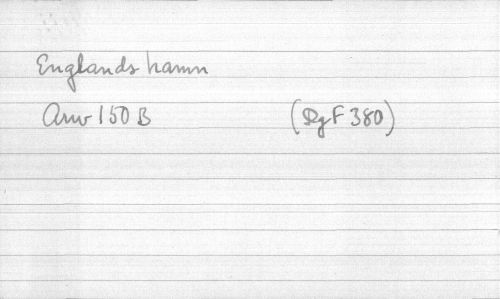 Englands hamn
Arw 150 B (Rg F 380)